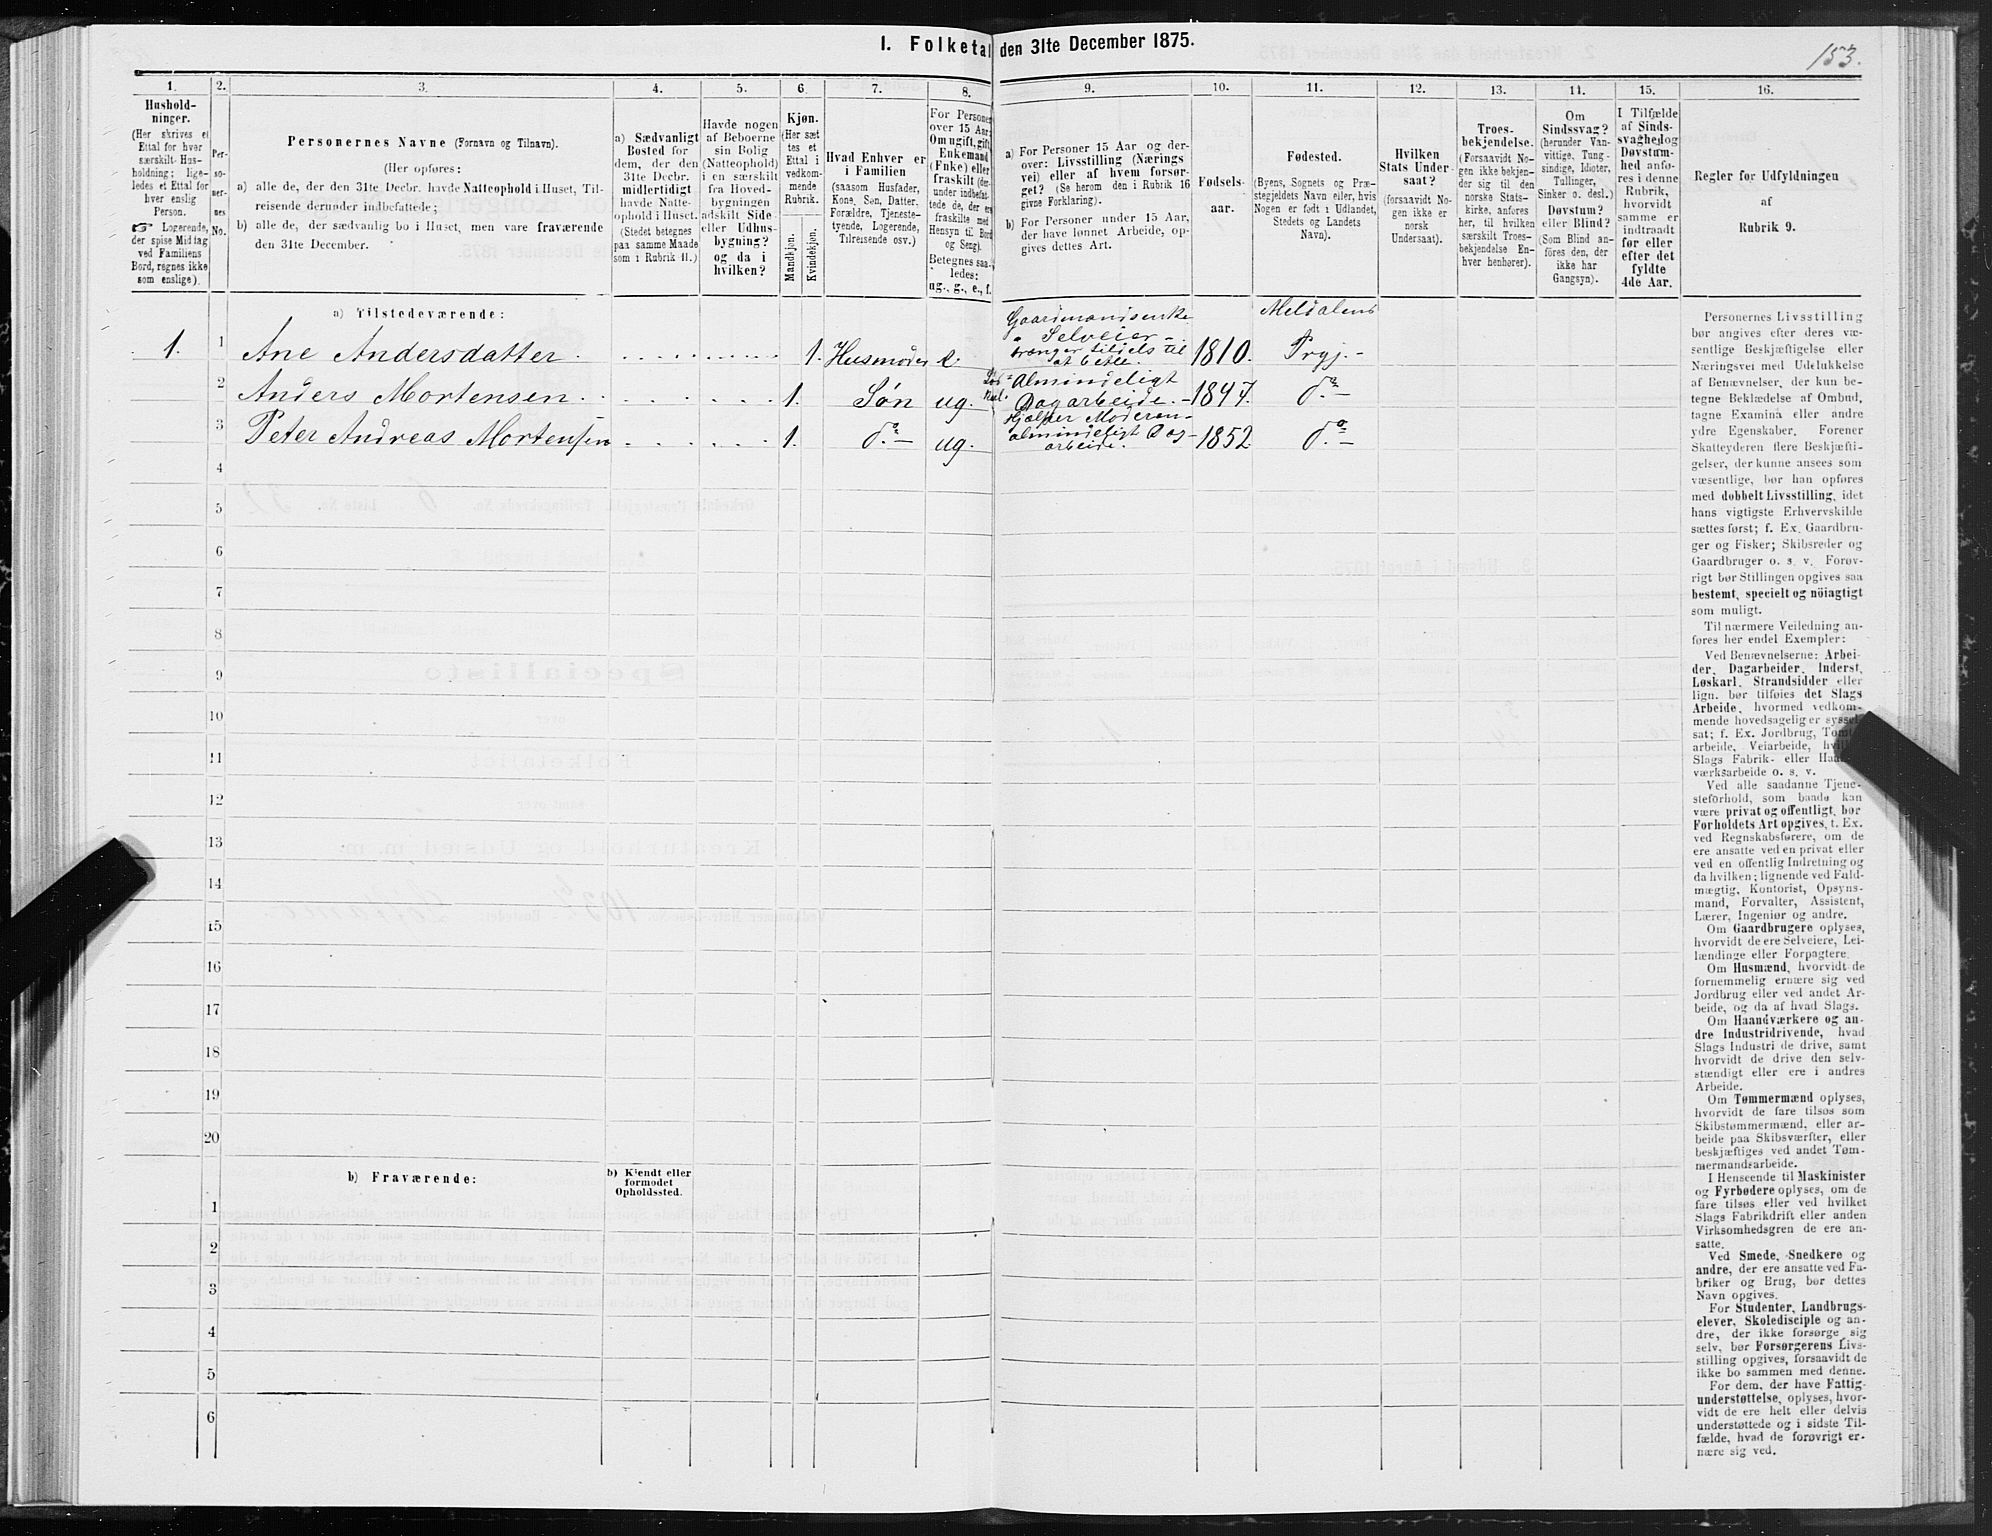 I. Folketal den 31te December 1875.
153.
1.
2.
3.
4.
5.
6.
7.
8.
9.
10.
11.
12.
13.
14.
15.
16.
Hushold-
ninger.
(Her skrives et
Ettal for hver
særskilt Hus-
holdning; lige-
ledes et Ettal for
hver enslig
Person.
☞ Logerende,
der spise Middag
ved Familiens
Bord, regnes ikke
som enslige).
Per-
so-
ner-
nes
No.
Personernes Navne (Fornavn og Tilnavn).
(Her opføres:
a) alle de, der den 31te Decbr. havde Natteophold i Huset, Til-
reisende derunder indbefattede;
b) alle de, der sædvanlig bo i Huset, men vare fraværende
den 31te December.
a) Sædvanligt
Bosted for
dem, der den
31te Decbr.
midlertidigt
havde Natte-
ophold i Huset.
(Stedet betegnes
paa samme Maade
som i Rubrik 11.)
Havde nogen
af Beboerne
sin Bolig
(Natteophold)
i en særskilt
fra Hoved-
bygningen
adskilt Side-
eller Udhus-
bygning?
og da i
hvilken?
Kjøn.
(Her sæt-
tes et
Ettal i
vedkom-
mende
Rubrik.
Mandkjøn.
Kvindekjøn.
Hvad Enhver er
i Familien
(saasom Husfader,
Kone, Søn, Datter,
Forældre, Tjeneste-
tyende, Logerende,
Tilreisende osv.)
For Personer
over 15 Aar:
Om ugift, gift,
Enkemand
(Enke) eller
fraskilt (der-
under indbefat-
tede de, der ere
fraskilte med
Hensyn til Bord
og Seng).
Betegnes saa-
ledes:
ug., g., e., f.
a) For Personer 15 Aar og der-
over: Livsstilling (Nærings-
vei) eller af hvem forsør-
get? (Se herom den i Rubrik 16
givne Forklaring).
b) For Personer under 15 Aar,
der have lønnet Arbeide, op-
gives dettes Art.
Fødsels-
aar.
Fødested.
(Byens, Sognets og Præ-
stegjeldets Navn eller, hvis
Nogen er født i Udlandet,
Stedets og Landets
Navn).
Hvilken
Stats Under-
saat?
(forsaavidt No-
gen ikke er
norsk
Undersaat).
Troes-
bekjendelse.
(Forsaavidt No-
gen ikke bekjen-
der sig til den
norske Stats-
kirke, anføres
her, til hvilken
særskilt Troes-
bekjendelse En-
hver henhører).
Om
Sindssvag?
(herunder Van-
vittige, Tung-
sindige, Idioter,
Tullinger,
Sinker o. desl.)
Døvstum?
eller Blind?
(Som Blind an-
føres den, der
ikke har
Gangsyn).
I Tilfælde
af Sinds-
svaghed og
Døvstum-
hed anfø-
res i denne
Rubrik,
hvorvidt
samme er
indtraadt
før eller
efter det
fyldte
4de Aar.
Regler for Udfyldningen
af
Rubrik 9.
a) Tilstedeværende:
1. 1 Ane Andersdatter 1. Husmoder e. Gaarimandsenke Selveier trænger tildels til at betle. 1810. Meldalens Prgj.
2 Anders Mortensen 1. Søn ug. Almindeligt Dagarbeide. 1847. do
3 Peter Andreas Mortensen 1. do ug. Hjælper Moderen almindeligt Dagarbeide. 1852 do
4
5
6
7
8
9
10
11
12
13
14
15
16
17
18
19
20
b) Fraværende:
b) Kjendt eller
formodet
Opholdssted.
1
2
3
4
5
6
Personernes Livsstilling
bør angives efter deres væ-
sentlige Beskjæftigelse eller
Næringsvei med Udelukkelse
af Benævnelser, der kun be-
tegne Beklædelse af Ombud,
tagne Examina eller andre
ydre Egenskaber. Forener
Skatteyderen flere Beskjæfti-
gelser, der kunne ansees som
væsentlige, bør han opføres
med dobbelt Livsstilling, idet
hans vigtigste Erhvervskilde
sættes først; f. Ex. Gaardbru-
ger og Fisker; Skibsreder og
Gaardbruger o. s. v. Forøv-
rigt bør Stillingen opgives saa
bestemt, specielt og nöiagtigt
som muligt.
Til nærmere Veiledning an-
føres her endel Exempler:
Ved Benævnelserne: Arbei-
der, Dagarbeider, Inderst,
Løskarl, Strandsidder eller
lign. bør tilføies det Slags
Arbeide, hvormed vedkom-
mende hovedsagelig er syssel-
sat; f. Ex. Jordbrug, Tømt
arbeide, Veiarbeide, hvil
Slags Fabrik- eller Haand
værksarbeide o. s. v.
Ved alle saadanne Tjene-
steforhold, som baade kan
være privat og offentligt, bør
Forholdets Art opgives, f. Ex.
ved Regnskabsførere, om de
ere ansatte ved en privat eller
ved en offentlig Indretning og
da hvilken; lignende ved Fuld-
mægtig, Kontorist, Opsyns-
mand, Forvalter, Assistent,
Lærer, Ingeniør og andre.
Om Gaardbrugere oplyses,
hvorvidt de ere Selveiere, Lei-
lændinge eller Forpagtere.
Om Husmænd, hvorvidt de
fornemmelig ernære sig ved
Jordbrug eller ved andet Ar-
beide, og da af hvad Slags.
Om Haandværkere og an-
dre Industridrivende, hvad
Slags Industri de drive, samt
hvorvidt de drive den selv-
stændigt eller ere i andres
Arbeide.
Om Tømmermænd oplyses,
hvorvidt de fare tilsøs som
Skibstømmermænd, eller ar-
beide paa Skibsværfter, eller
beskjæftiges ved andet Tøm-
mermandsarbeide.
I Henseende til Maskinister
og Fyrbødere oplyses, om de
fare tilsøs eller ved hvilket
Slags Fabrikdrift eller anden
Virksomhedsgren de ere an-
satte.
Ved Smede, Snedkere og
andre, der ere ansatte ved Fa-
briker og Brug, bør dettes
Navn opgives.
For Studenter, Landbrugs-
elever, Skoledisciple og an-
dre, der ikke forsørge sig
selv, bør Forsørgerens Livs-
stilling opgives, forsaavidt de
ikke bo sammen med denne.
For dem, der have Fattig-
understøttelse, oplyses, hvor-
vidt de ere helt eller delvis
understøttede og i sidste Til-
fælde, hvad de forøvrigt er-
nære sig ved.